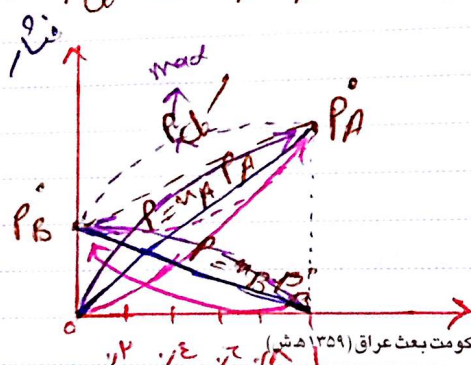 فشار
mad
P کل
P°A
P°B
P = xA P°A
P = xB P°B
0
۰٫۲ ۰٫٤ ۰٫٦ ۰٫۸ ۱
کومت بعث عراق (۱۳۵۹ ه‍ ش)